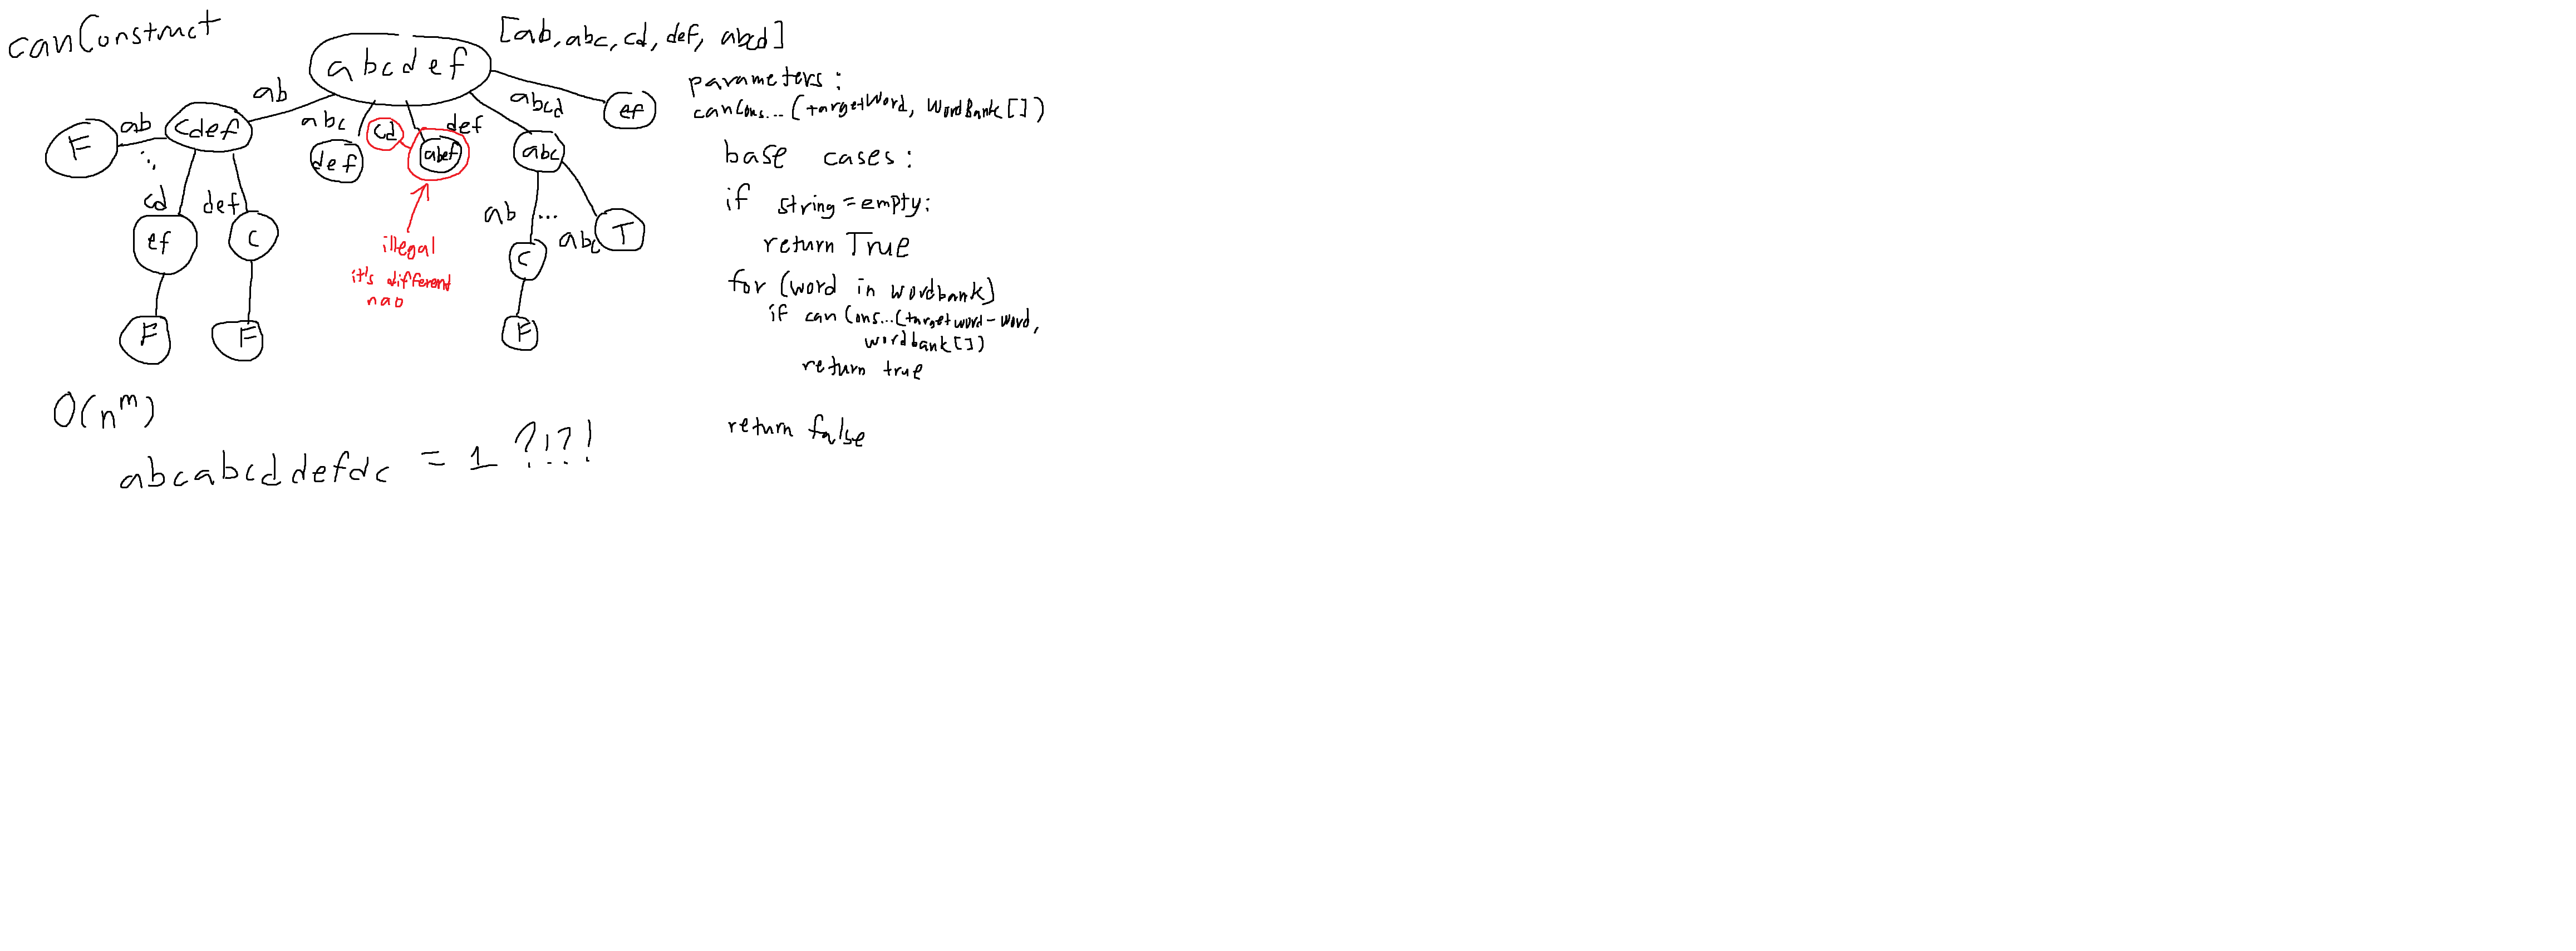 canConstruct
[ab, abc, cd, def, abcd]
abcdef
ab
abc
cd
def
abcd
ef
F
ab
cdef
def
abef
abc
cd
def
ef
C
F
F
ab
...
abc
T
C
F
illegal
it's different
nao
O(n^m)
abcabcddefdc = 1 ?!?!
parameters:
canCons...(targetWord, WordBank[])
base cases:
if string = empty:
return True
for (word in wordbank)
if canCons...(targetword-word,
wordbank[])
return true
return false